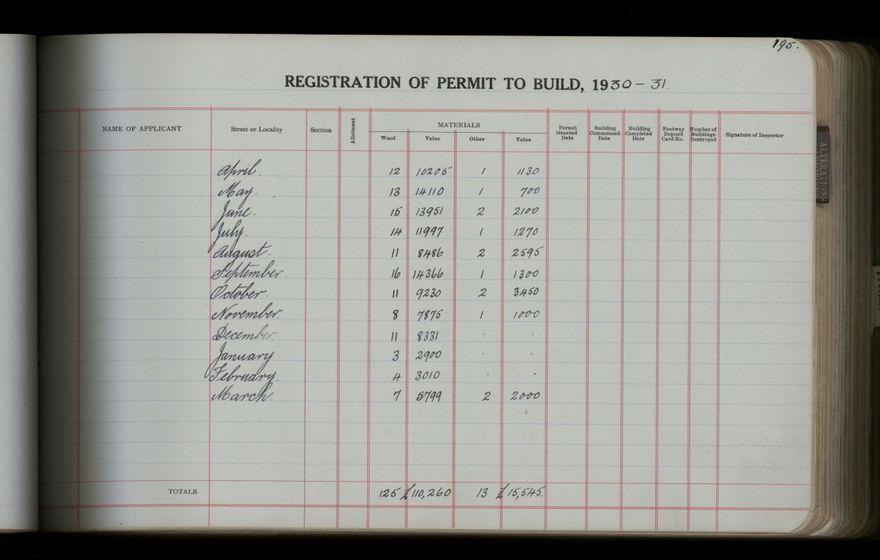 195.
REGISTRATION OF PERMIT TO BUILD, 1930-31.
NAME OF APPLICANT Street or Locality Section Allotment MATERIALS Wood Value Other Value Permit Granted Date Building Commenced Date Building Completed Date Footway Deposit Card No. Number of Buildings Destroyed Signature of Inspector
April. 12 10205 1 1130
May. 13 14110 1 700
June. 15 13951 2 2100
July. 14 11997 1 1270
August. 11 8486 2 2595
September. 16 14366 1 1300
October. 11 9230 2 3450
November. 8 7875 1 1000
December. 11 8331 . .
January 3 2900 . .
February. 4 3010 . .
March. 7 5799 2 2000
TOTALS 125 £110,260 13 £15,545.
ALTERATIONS